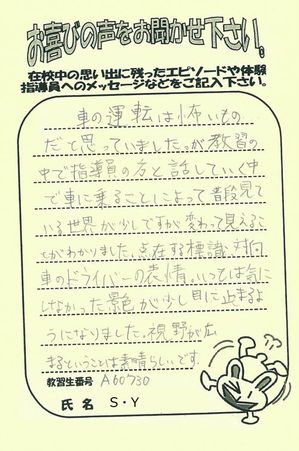 お喜びの声をお聞かせ下さい。
在校中の思い出に残ったエピソードや体験
指導員へのメッセージなどをご記入下さい。
車の運転は怖いもの
だと思っていました。が教習の
中で指導員の方と話していく中
で車に乗ることによって普段見て
いる世界が少しですが変わって見えるこ
とがわかりました。点在する標識、対向
車のドライバーの表情、いつもは気に
しなかった景色が少し目に止まるよ
うになりました。視野が広
まるということは素晴らしいです。
教習生番号 A60730
氏 名 S・Y